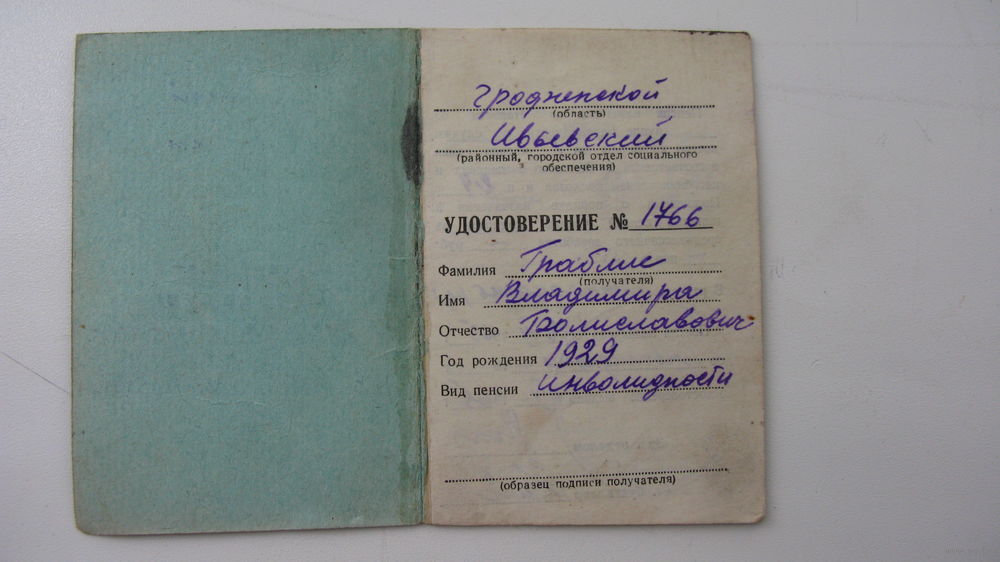 Гродненской
(область)
Ивьевский
(районный, городской отдел социального
обеспечения)
УДОСТОВЕРЕНИЕ № 1766
Фамилия Граблис
(получателя)
Имя Владимира
Отчество Болиславович
Год рождения 1929
Вид пенсии инволидности
(образец подписи получателя)